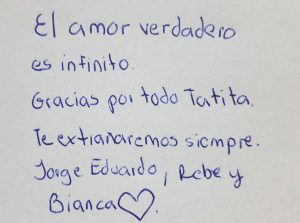 El amor verdadero
es infinito.
Gracias por todo Tatita.
Te extrañaremos siempre.
Jorge Eduardo, Rebe y
Bianca♡.